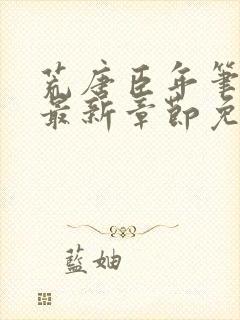 荒唐臣年筆
最新章節免
藍妯